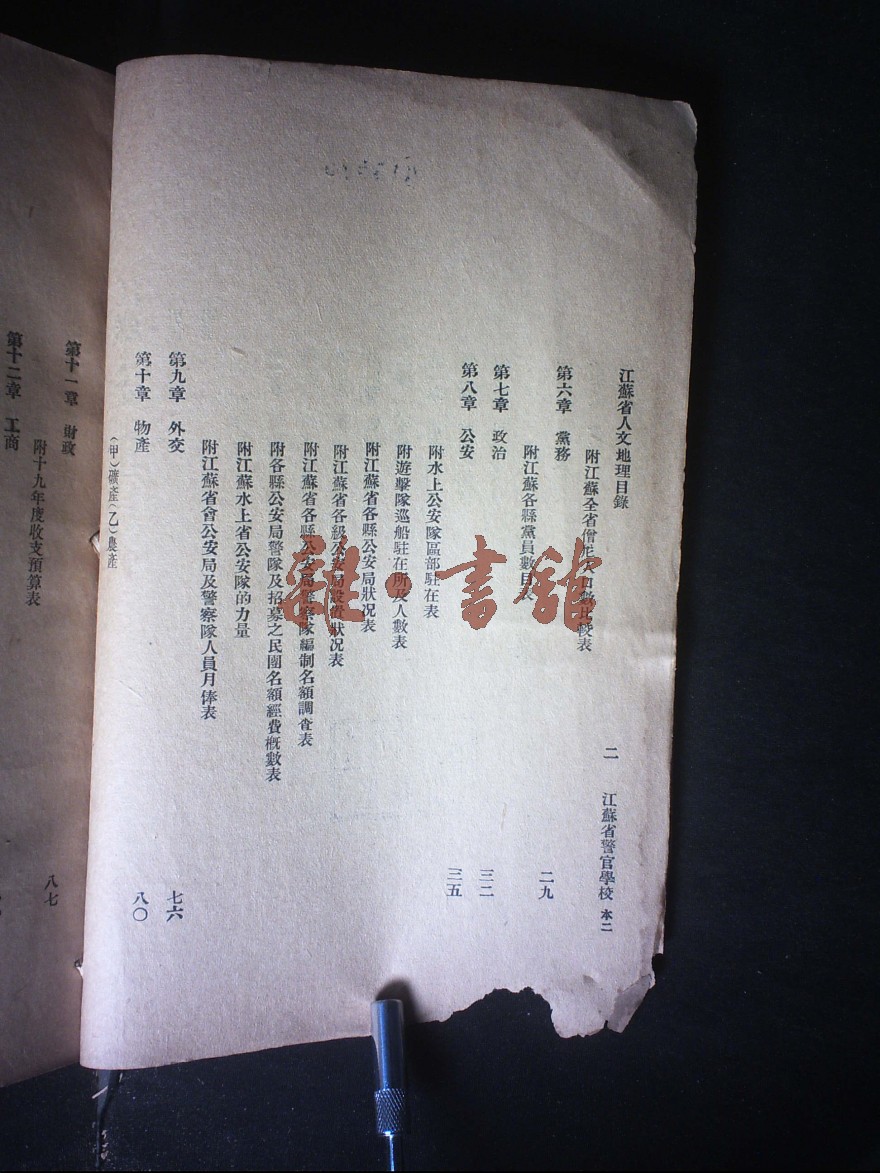 江蘇省人文地理目錄 二 江蘇省警官學校 本二
附江蘇全省僧尼人口數比較表
第六章 黨務 二九
附江蘇各縣黨員數目表
第七章 政治 三二
第八章 公安 三五
附水上公安隊區部駐在表
附遊擊隊巡船駐在所及人數表
附江蘇省各縣公安局狀况表
附江蘇省各級公安局設置狀况表
附江蘇省各縣公安局警察隊編制名額調查表
附各縣公安局警隊及招募之民團名額經費概數表
附江蘇水上省公安隊的力量
附江蘇省會公安局及警察隊人員月俸表
第九章 外交 七六
第十章 物產 八〇
(甲)礦產(乙)農產
第十一章 財政
附十九年度收支預算表 八七
第十二章 工商